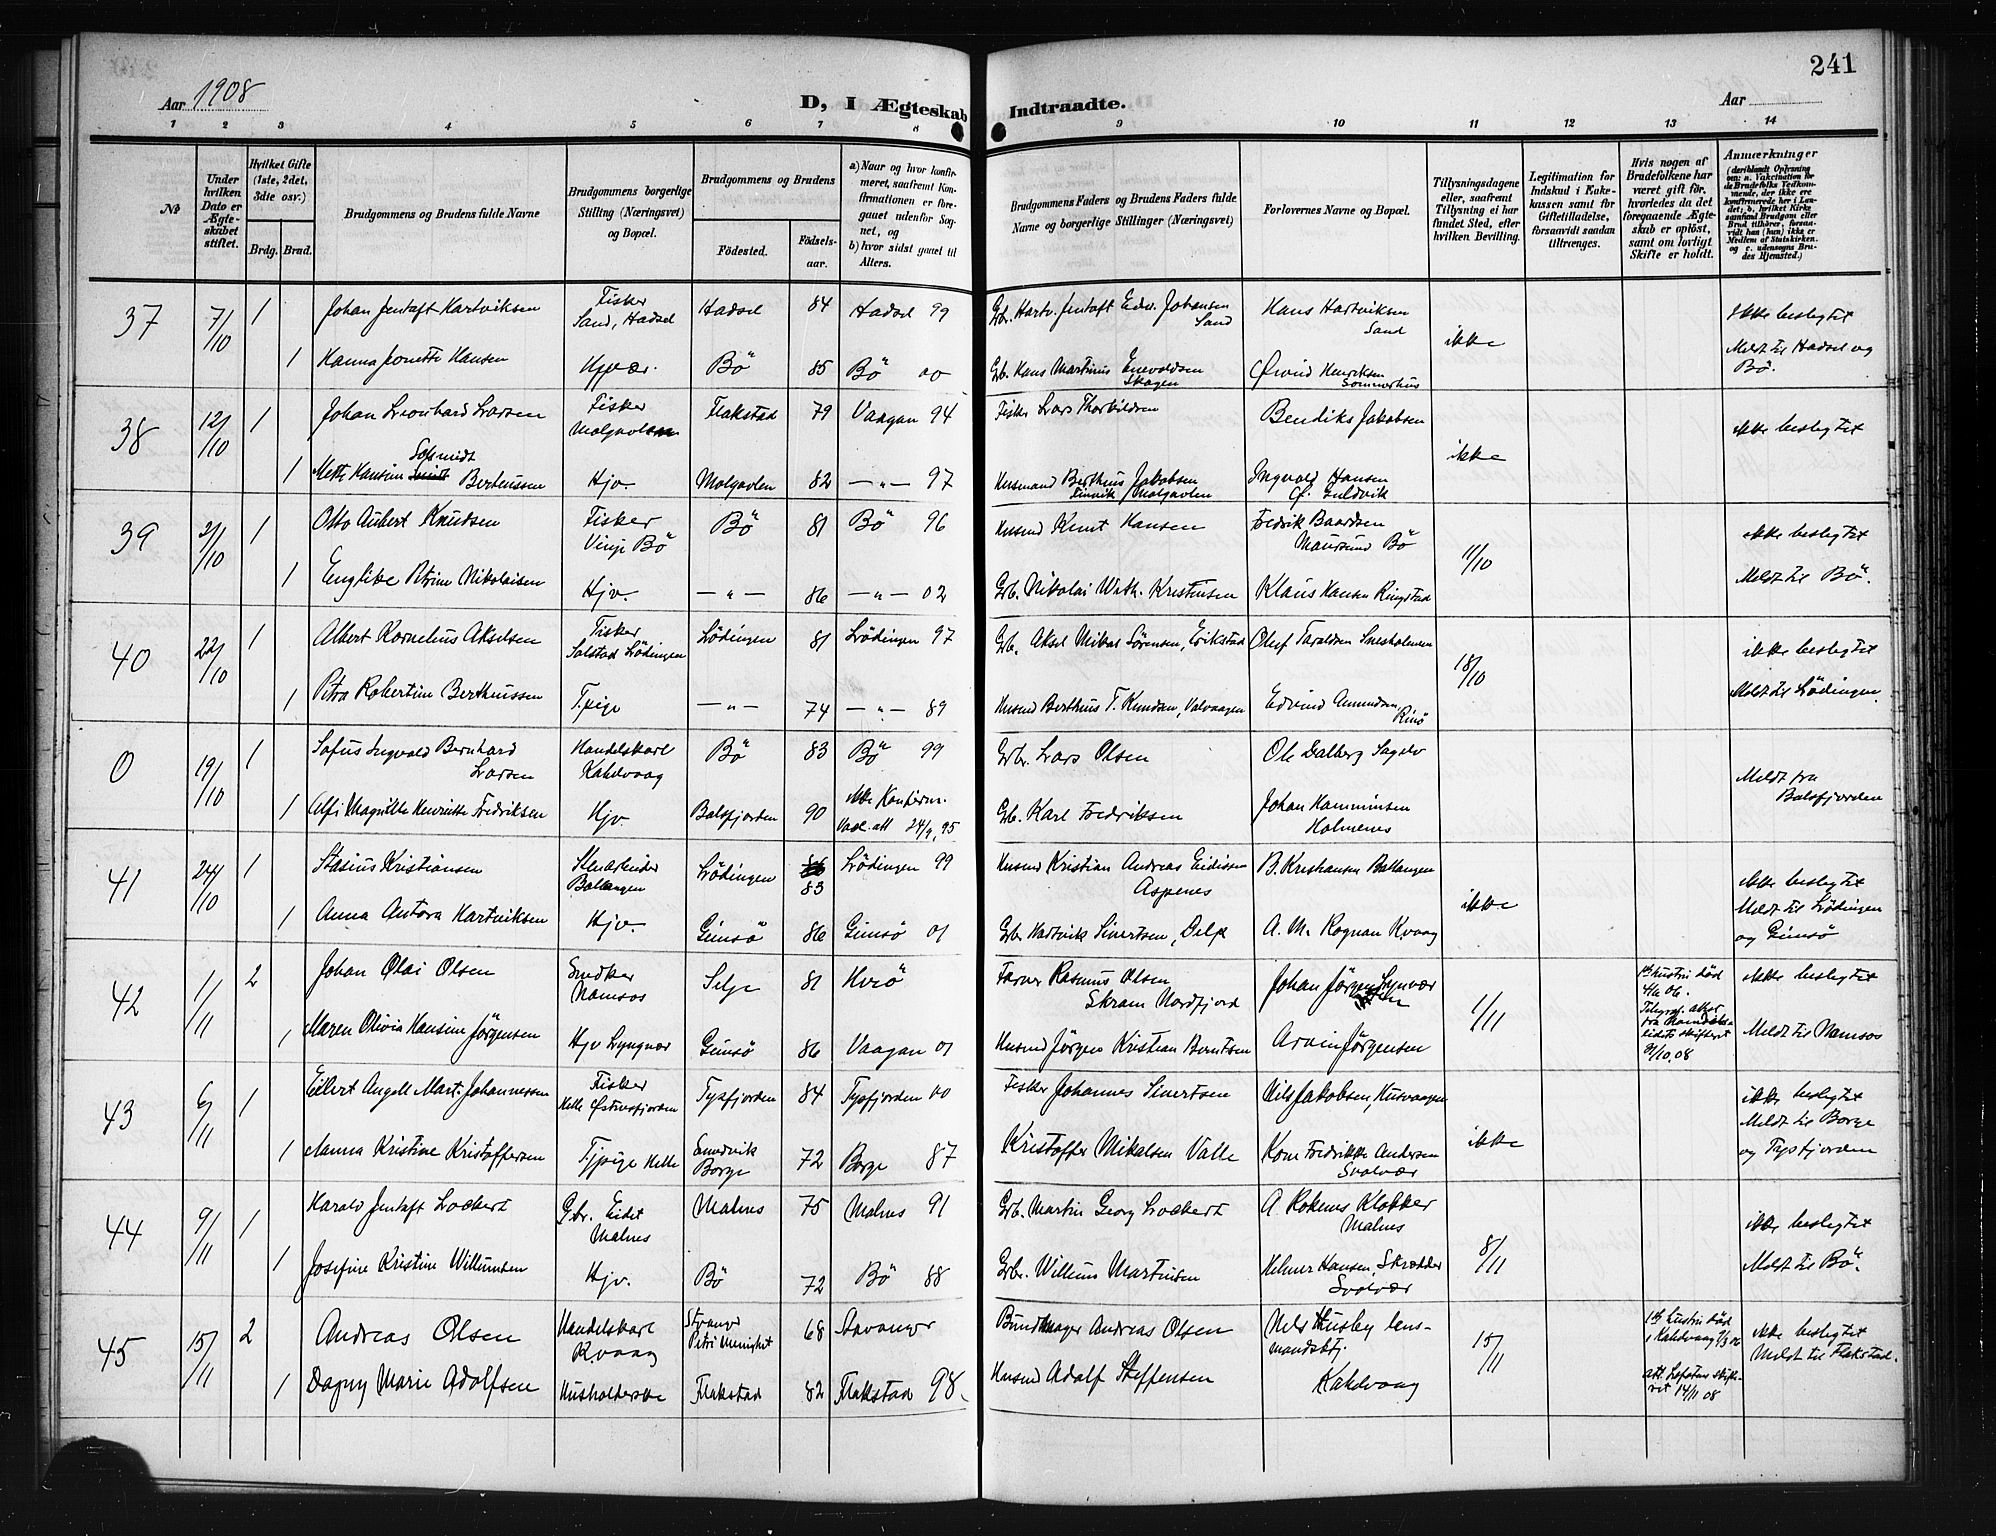 241
Aar 1908
D, I Ægteskab Indtraadte.
Aar
1 2 3 4 5 6 7 8 9 10 11 12 13 14
№
Under hvilken Dato er Ægteskabet stiftet.
Hvilket Gifte (1ste, 2det, 3die osv.)
Brdg. Brud.
Brudgommens og Brudens fulde Navne
Brudgommens borgerlige Stilling (Næringsvei) og Bopæl.
Brudgommens og Brudens
Fødested.
Fødselsaar.
a) Naar og hvor konfirmeret, saafremt Konfirmationen er foregaaet udenfor Sognet, og
b) hvor sidst gaaet til Alters.
Brudgommens Faders og Brudens Faders fulde Navne og borgerlige Stillinger (Næringsvei)
Forlovernes Navne og Bopæl.
Tillysningsdagene eller, saafremt Tillysning ei har fundet Sted, efter hvilken Bevilling.
Legitimation for Indskud i Enkekassen samt for Giftetilladelse, forsaavidt saadan tiltrænges.
Hvis nogen af Brudefolkene har været gift før, hvorledes da det foregaaende Ægteskab er opløst, samt om lovligt Skifte er holdt.
Anmærkninger
37 7/10 1 Johan Jentoft Hartviksen Fisker Sand, Hadsel Hadsel 84 Hadsel 99 Gbr. Hartv. Jentoft Edv. Johansen Sand Hans Hartviksen Sand ikke Ikke beslegtet
1 Hanna Jonette Hansen Bö 85 Bö 00 Gb. Hans Martinus Enevoldsen Skagen Øivind Henriksen Sommerhus Meldt til Hadsel og Bö.
38 12/10 1 Johan Leonhard Larsen Fisker Molgavlen Flakstad 79 Vaagan 94 Fisker Lars Thorkildsen Bendiks Jakobsen ikke ikke beslegtet
1 Mette Hansine Schmidt Berteussen Hjv. Molgavlen 82 — " — 97 Husmand Berthus Jakobsen Molgavlen Ingvald Hansen
39 21/10 1 Otto Aubert Knudsen Fisker Vinje Bö Bö 81 Bö 96 Husmd Knut Hansen Fredrik Baardsen Maursund Bö 11/10 ikke beslegtet
1 Englike Petrine Nikolaisen Hjv. — " — 86 — " — 02 Grb. Nikolai With. Kristensen Klaus Hansen Ringstad Meldt til Bö.
40 22/10 1 Albert Kornelius Akselsen Fisker Salstad Lödingen Lödingen 81 Lödingen 97 Gb. Aksel Mikal Sörensen, Erikstad Oluf Taraldsen Svesholmen 18/10 ikke beslegtet
1 Petra Robertine Berthinssen T.pige — " — 74 — " — 89 Husmd Berthus T. Knudsen, Valvaagen Edvind Amundsen, Rinö Meldt til Lödingen
0 19/10 1 Sofus Ingvald Bernhard Larsen Handelskarl Kabelvaag Bö 83 Bö 99 Gbr. Lars Olsen Ole Dalberg Meldt fra Balsfjorden
1 Alfi Magnilde Henriette Fredriksen Hjv. Balsfjorden 90 ikke Konfirm. Vacc. att 24/9, 95 Gb. Karl Fredriksen Johan Hamminsen Holmenes
41 24/10 1 Stasius Kristiansen Stenarbeider Ballangen Lödingen 83 Lödingen 99 Husmd Kristian Andreas Eidissen Aspenes B. Kristiansen Ballangen ikke ikke beslegtet
1 Anna Antora Hartviksen Hjv. Gimsö 86 Gimsö 01 Gbr Hartvik Sivertsen, Delp A. M. Rognan K.vaag Meldt til Lödingen og Gimsö
42 1/11 2 Johan Olai Olsen Snedker Namsos Selje 81 Hvrö Farver Rasmus Olsen Skram Nordfjord Johan Jörgensen 1/11 1ste hustru död 4/6 06. ikke beslegtet
1 Maren Olivia Hansine Jörgensen Hjv Lyngvær Gimsö 86 Vaagan 01 Husmd Jörgen Kristian Berntsen Arvin Jörgensen 9/10.08 Meldt til Namsos
43 6/11 1 Eilert Angell Mart. Johannessen Fisker Helle Östnesfjorden Tysfjorden 84 Tysfjorden 00 Fisker Johannes Sivertsen Nils Jakobsen, Husvaagen ikke ikke beslegtet
1 Nanna Kristine Kristoffersen Tjpige Helle Sundvik Borge 72 Borge 87 Kristoffer Mikalsen Valle Kone Fredrikke Andersen Svolvær Meldt til Borge og Tysfjorden
44 9/11 1 Harald Jentoft Lockert Gbr. Eidet Malnes Malnes 75 Malnes 91 Gb. Martin Georg Lockert A. Rokenes Klokker Malnes 8/11 ikke beslegtet
1 Josefine Kristine Willumsen Hjv. Bö 72 Bö 88 Gbr. Willum Martinsen Helmer Hansen, Skrædder Svolvær Meldt til Bö.
45 15/11 2 Andreas Olsen Handelskarl K.vaag Stavanger Petri Menighet 68 Stavanger Buntmager Andreas Olsen Nils Husby lensmandsbtj. 15/11 1ste hustru död i Kabelvaag 7/3 06 ikke beslegtet
1 Dagny Marie Adolfsen Husholderske Flakstad 82 Flakstad 98. Husmd Adolf Steffensen Kabelvaag att. Lofoten skifteret 14/11 08 Meldt til Flakstad.